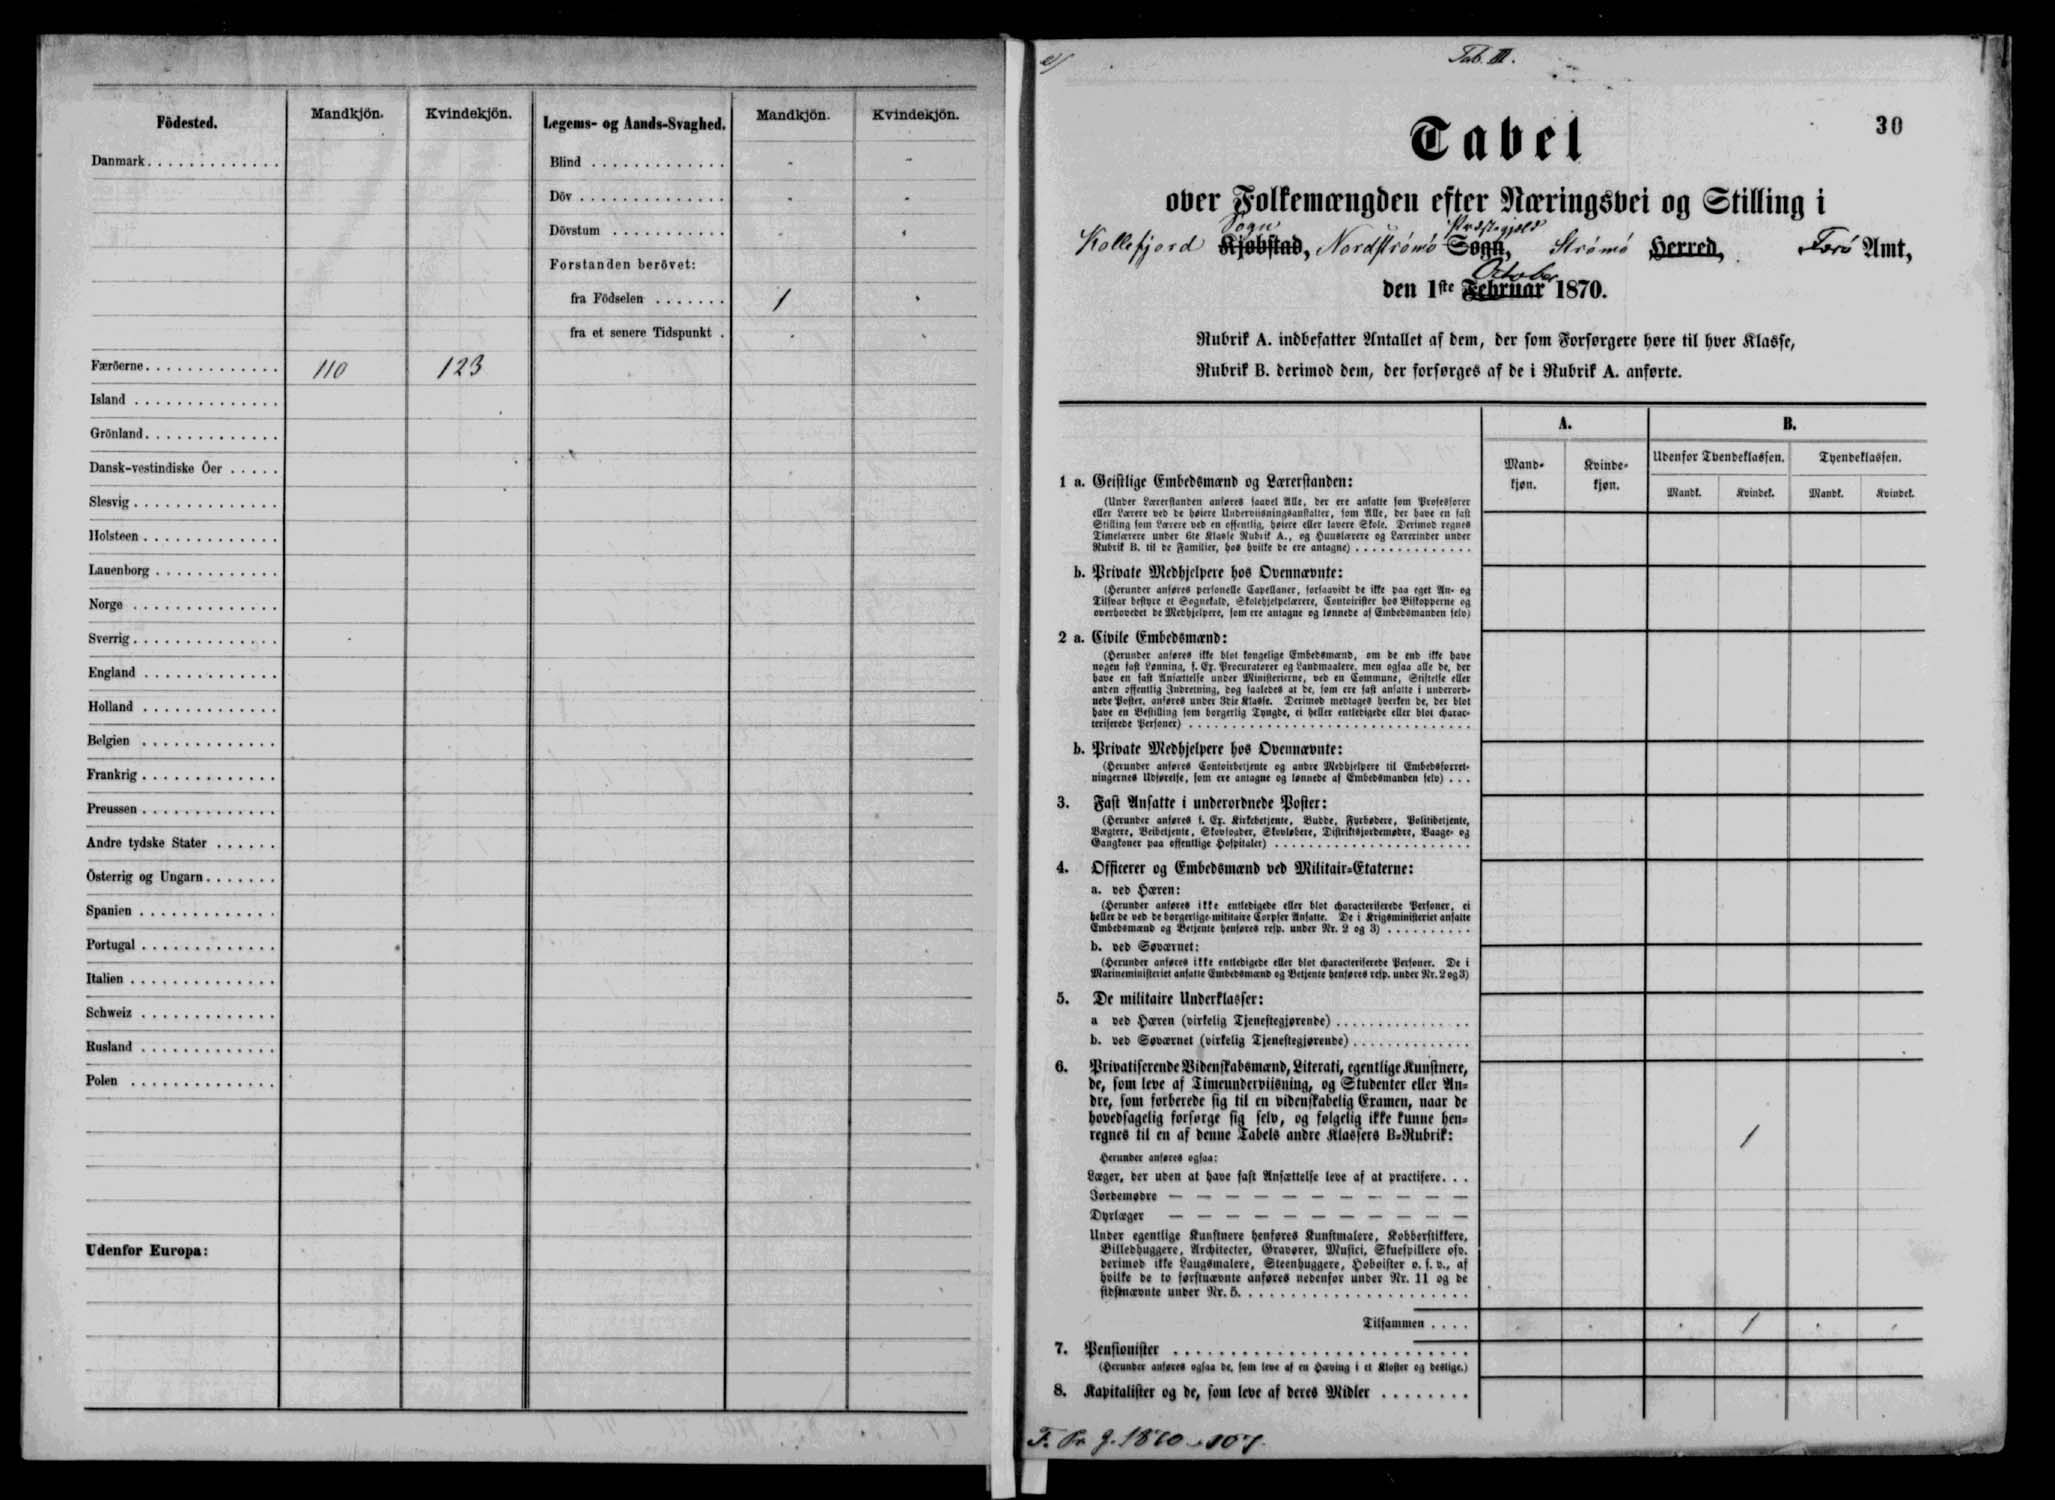 Födested. Mandkjön. Kvindekjön. Legems- og Aands-Svaghed. Mandkjön. Kvindekjön.
Danmark Blind
Döv
Dövstum
Forstanden berövet:
fra Födselen 1
fra et senere Tidspunkt
Færöerne 110 123
Island
Grönland
Dansk-vestindiske Öer
Slesvig
Holsteen
Lauenborg
Norge
Sverrig
England
Holland
Belgien
Frankrig
Preussen
Andre tydske Stater
Österrig og Ungarn
Spanien
Portugal
Italien
Schweiz
Rusland
Polen
Udenfor Europa:
Tab. III.
30
Tabel
over Folkemængden efter Næringsvei og Stilling i
Sogn Præstegjeld
Kollefjord Kjøbstad, Nordstrømø Sogn, Strømø Herred, Færø Amt,
October
den 1ste Februar 1870.
Rubrik A. indbefatter Antallet af dem, der som Forsørgere høre til hver Klasse,
Rubrik B. derimod dem, der forsørges af de i Rubrik A. anførte.
A. B.
Mand- Kvinde- Udenfor Tyendeklassen. Tyendeklassen.
kjøn. kjøn. Mandk. Kvindek. Mandk. Kvindek.
1 a. Geistlige Embedsmænd og Lærerstanden:
(Under Lærerstanden anføres saavel Alle, der ere ansatte som Professorer
eller Lærere ved de høiere Underviisningsanstalter, som Alle, der have en fast
Stilling som Lærere ved en offentlig, høiere eller lavere Skole. Derimod regnes
Timelærere under 6te Klasse Rubrik A., og Huuslærere og Lærerinder under
Rubrik B. til de Familier, hos hvilke de ere antagne)
b. Private Medhjelpere hos Ovennævnte:
(Herunder anføres personelle Capellaner, forsaavidt de ikke paa eget An- og
Tilsvar bestyre et Sognekald, Skolehjelpelærere, Contoirister hos Biskopperne og
overhovedet de Medhjelpere, som ere antagne og lønnede af Embedsmanden selv)
2 a. Civile Embedsmænd:
(Herunder anføres ikke blot kongelige Embedsmænd, om de end ikke have
nogen fast Lønning, f. Ex. Procuratorer og Landmaalere, men ogsaa alle de, der
have en fast Ansættelse under Ministerierne, ved en Commune, Stiftelse eller
anden offentlig Indretning, dog saaledes at de, som ere fast ansatte i underord-
nede Poster, anføres under 3die Klasse. Derimod medtages hverken de, der blot
have en Bestilling som borgerlig Tyngde, ei heller entledigede eller blot charac-
teriserede Personer)
b. Private Medhjelpere hos Ovennævnte:
(Herunder anføres Contoirbetjente og andre Medhjelpere til Embedsforret-
ningernes Udførelse, som ere antagne og lønnede af Embedsmanden selv)
3. Fast Ansatte i underordnede Poster:
(Herunder anføres f. Ex. Kirkebetjente, Budde, Fyrbødere, Politibetjente,
Vægtere, Veibetjente, Skovfogder, Skovløbere, Distriktsjordemødre, Vaage- og
Gangkoner paa offentlige Hospitaler)
4. Officerer og Embedsmænd ved Militair-Etaterne:
a. ved Hæren:
(Herunder anføres ikke entledigede eller blot characteriserede Personer, ei
heller de ved de borgerlige-militaire Corpser Ansatte. De i Krigsministeriet ansatte
Embedsmænd og Betjente henføres resp. under Nr. 2 og 3)
b. ved Søværnet:
(Herunder anføres ikke entledigede eller blot characteriserede Personer. De i
Marineministeriet ansatte Embedsmænd og Betjente henføres resp. under Nr. 2 og 3)
5. De militaire Underklasser:
a ved Hæren (virkelig Tjenestegjørende)
b. ved Søværnet (virkelig Tjenestegjørende)
6. Privatiserende Videnskabsmænd, Literati, egentlige Kunstnere,
de, som leve af Timeunderviisning, og Studenter eller An-
dre, som forberede sig til en videnskabelig Examen, naar de
hovedsagelig forsørge sig selv, og følgelig ikke kunne hen-
regnes til en af denne Tabels andre Klassers B-Rubrik: 1
Herunder anføres ogsaa:
Læger, der uden at have fast Ansættelse leve af at practisere
Jordemødre — — — — — — — — — —
Dyrlæger — — — — — — — — — —
Under egentlige Kunstnere henføres Kunstmalere, Kobberstikkere,
Billedhuggere, Architecter, Gravører, Musici, Skuespillere osv.
derimod ikke Laugsmalere, Steenhuggere, Hoboister o. s. v., af
hvilke de to førstnævnte anføres nedenfor under Nr. 11 og de
sidstnævnte under Nr. 5.
Tilsammen 1
7. Pensionister
(Herunder anføres ogsaa de, som leve af en Hæving i et Kloster og deslige.)
8. Kapitalister og de, som leve af deres Midler